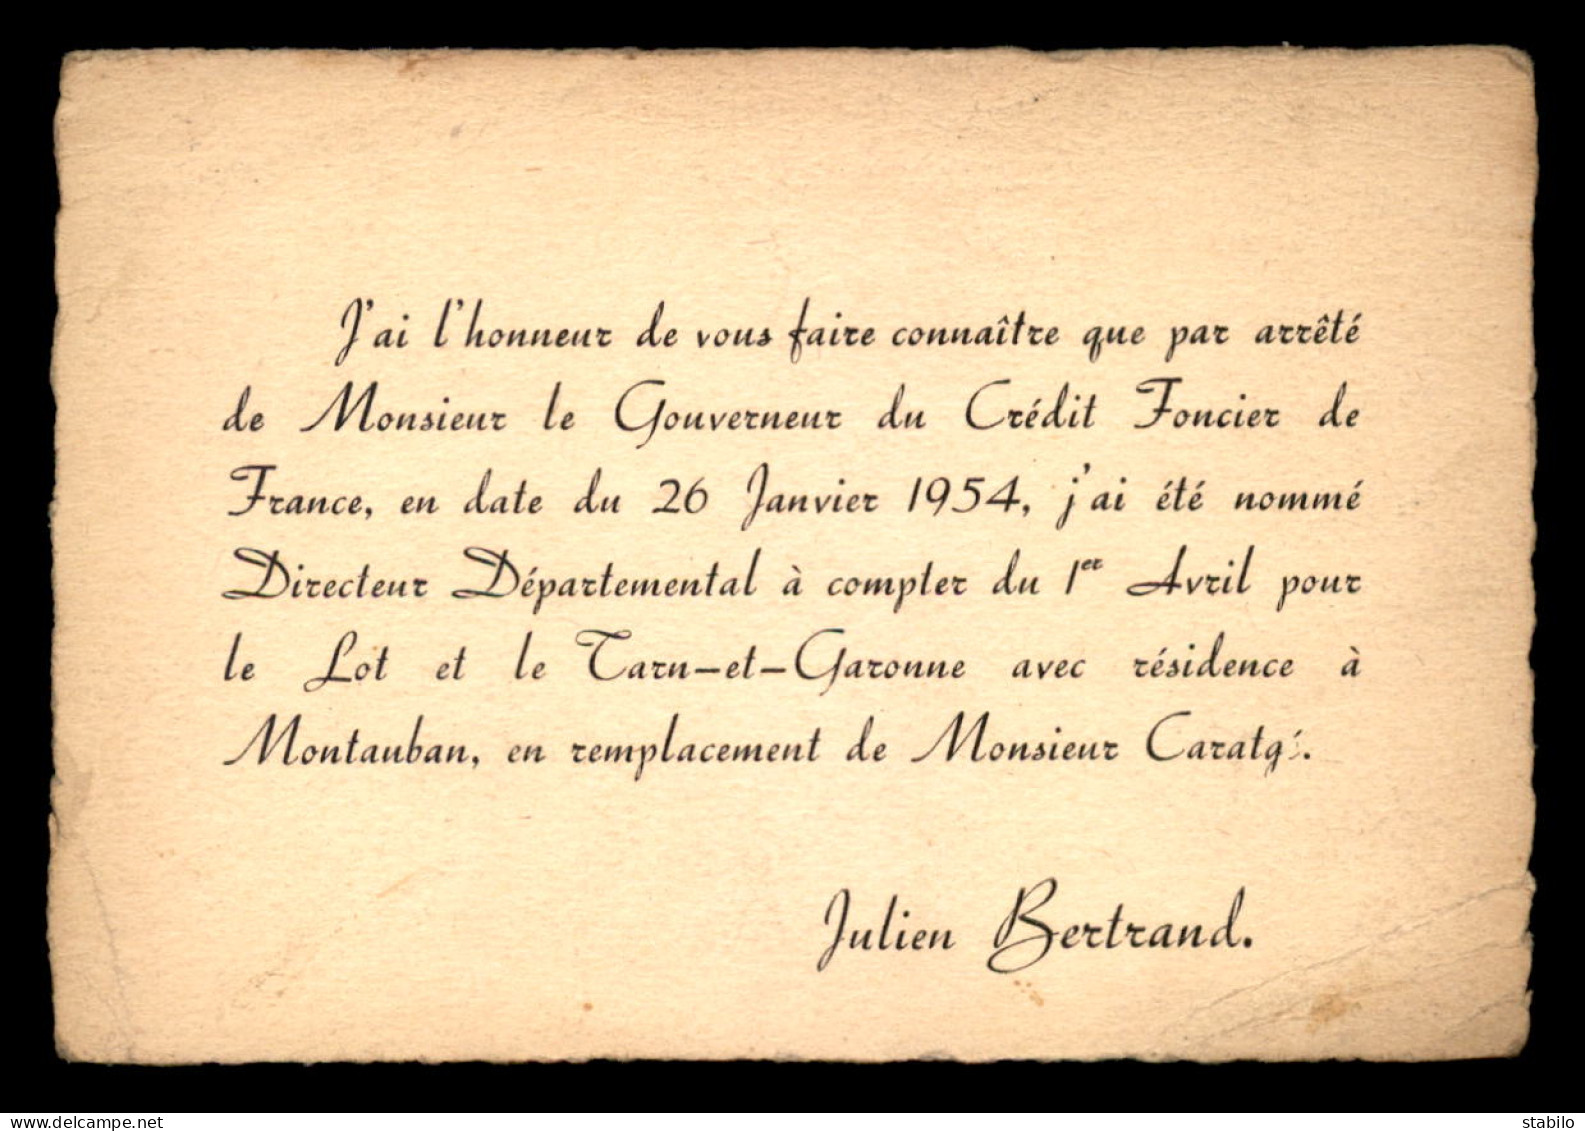 J'ai l'honneur de vous faire connaître que par arrêté
de Monsieur le Gouverneur du Crédit Foncier de
France, en date du 26 Janvier 1954, j'ai été nommé
Directeur Départemental à compter du 1er Avril pour
le Lot et le Tarn-et-Garonne avec résidence à
Montauban, en remplacement de Monsieur
Julien Bertrand.
the-salesman.net
stabilo